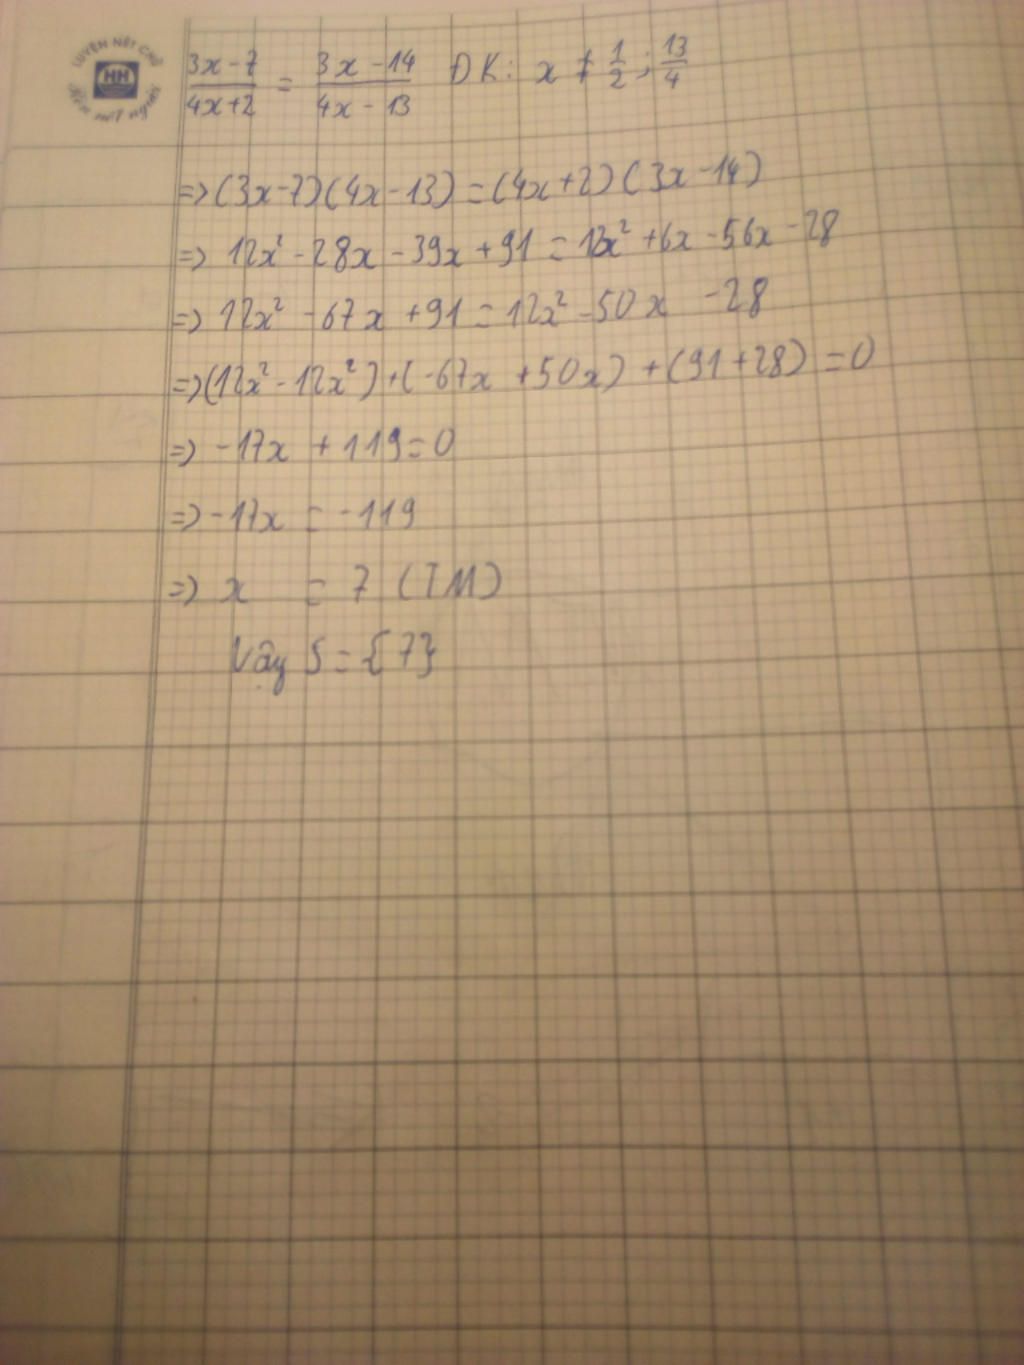 LUYỆN NÉT CHỮ
HH
Rèn nết người
3x-7/4x+2 = 3x-14/4x-13 ĐK: x ≠ 1/2; 13/4
=> (3x-7)(4x-13) = (4x+2)(3x-14)
=> 12x² - 28x - 39x + 91 = 12x² + 6x - 56x - 28
=> 12x² - 67x + 91 = 12x² - 50x - 28
=> (12x² - 12x²) + (-67x + 50x) + (91 + 28) = 0
=> -17x + 119 = 0
=> -17x = -119
=> x = 7 (TM)
Vậy S = {7}